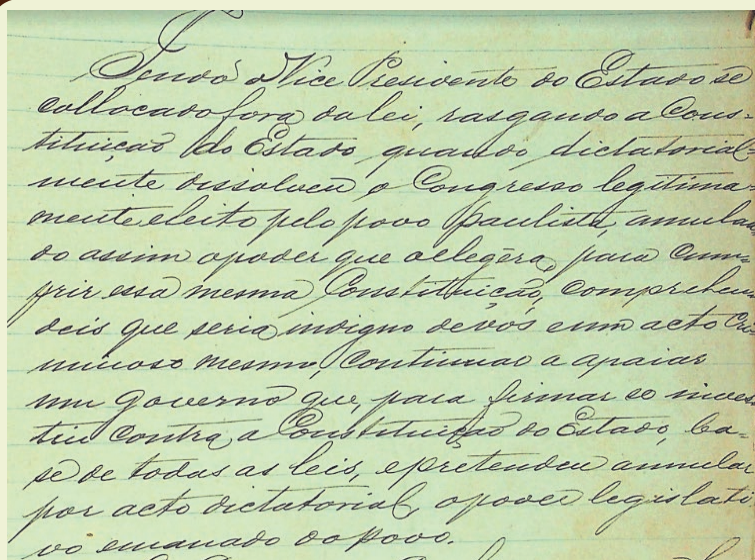 Tendo o Vice Presidente do Estado se
collocado fora da lei, rasgando a Cons-
tituição do Estado, quando dictatorial-
mente dissolveu o Congresso legitima
mente eleito pelo povo paulista, annullan
do assim o poder que o elegêra, para cum-
prir essa mesma Constituição, comprehen
deis que seria indigno de vós e um acto cri-
minoso mesmo, continuar a apoiar
um governo que, para firmar-se inves
tiu contra a Constituição do Estado, ba-
se de todas as leis, e pretendeu annullar
por acto dictatorial, o poder legislati
vo emanado do povo.